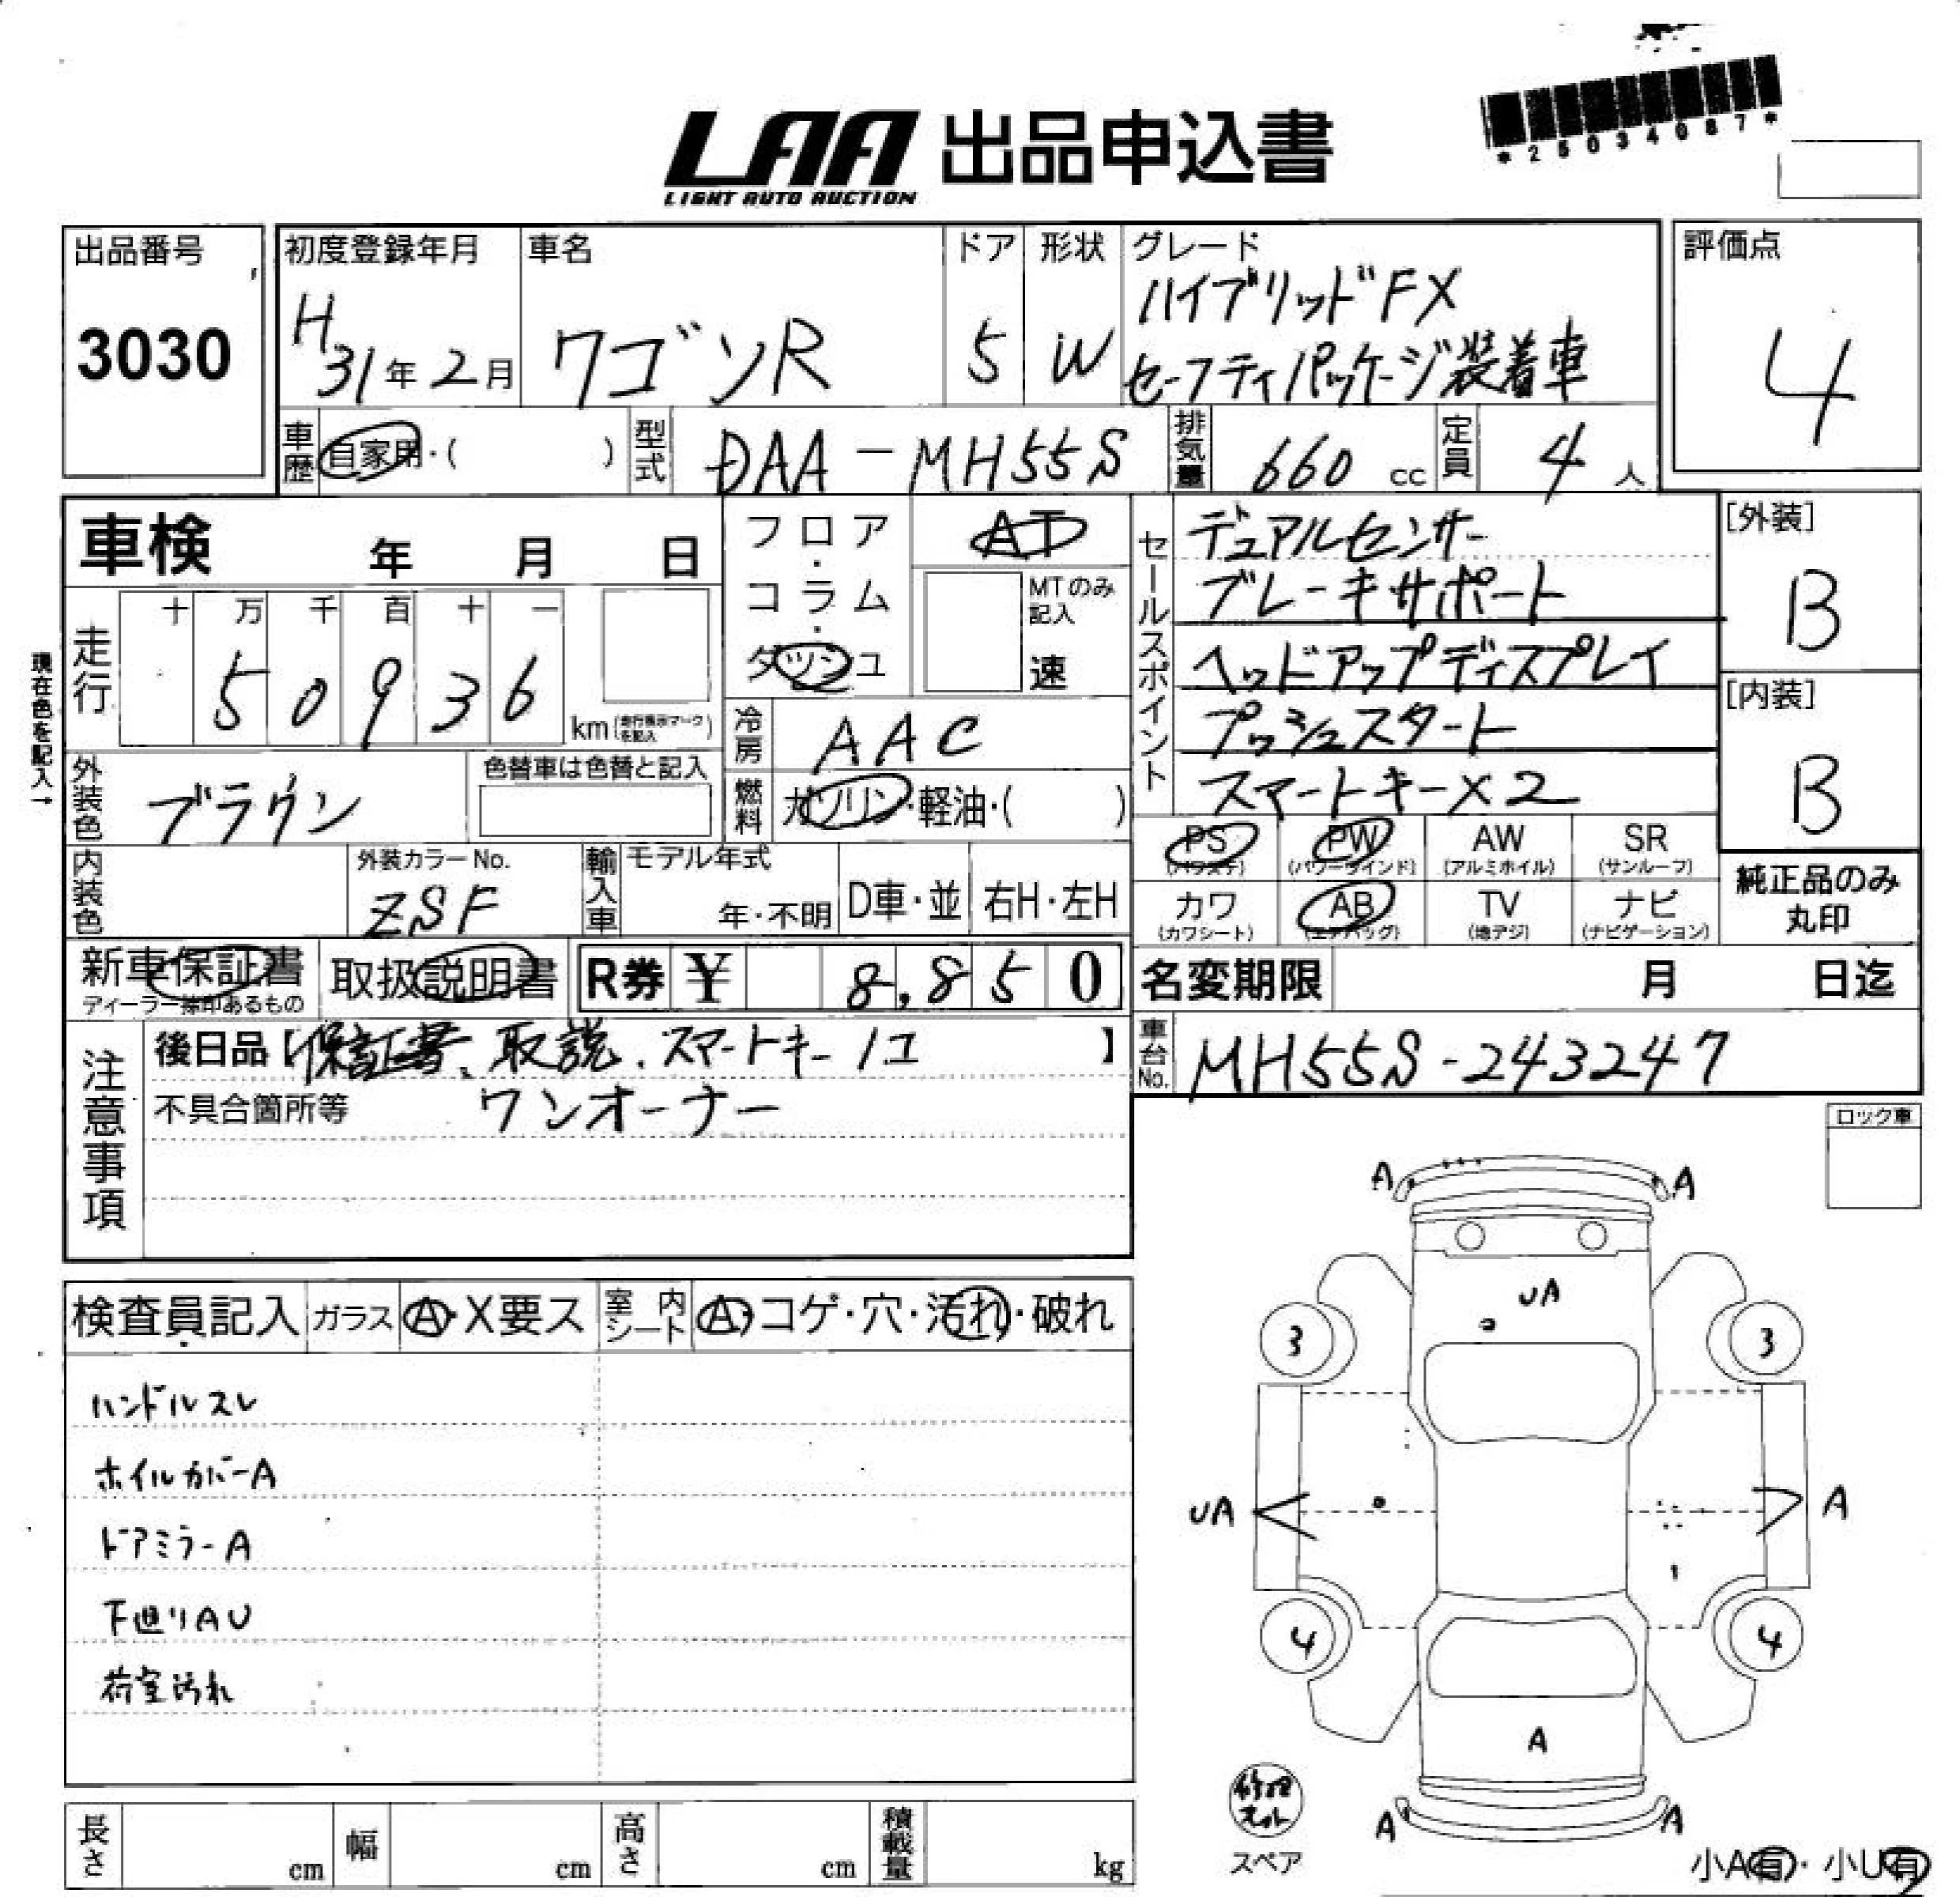 *25034087*
LAA 出品申込書
LIGHT AUTO AUCTION
出品番号
3030
初度登録年月
H31年2月
車名
ワゴンR
ドア
5
形状
W
グレード
ハイブリッドFX
セーフティパッケージ装着車
評価点
4
車歴 自家用・( )
型式 DAA-MH55S
排気量 660 cc
定員 4人
車検 年 月 日
フロア・コラム・ダッシュ
AT
MTのみ記入
速
セールスポイント
デュアルセンサー
ブレーキサポート
ヘッドアップディスプレイ
プッシュスタート
スマートキー×2
[外装]
B
[内装]
B
現在色を記入→
走行
十 万 千 百 十 一
5 0 9 3 6 km (走行表示マークを記入)
冷房 AAC
外装色 ブラウン
色替車は色替と記入
燃料 ガソリン・軽油・( )
PS (パワステ)
PW (パワーウインド)
AW (アルミホイル)
SR (サンルーフ)
内装色
外装カラーNo.
ZSF
輸入車
モデル年式
年・不明
D車・並
右H・左H
カワ (カワシート)
AB (エアバッグ)
TV (地デジ)
ナビ (ナビゲーション)
純正品のみ
丸印
新車保証書
ディーラー捺印あるもの
取扱説明書
R券 ¥ 8,850
名変期限 月 日迄
注意事項
後日品【保証書、取説、スマートキー1コ】
不具合箇所等 ワンオーナー
車台No. MH55S-243247
ロック車
検査員記入 ガラス A・X要ス
室内シート A・コゲ・穴・汚れ・破れ
ハンドルスレ
ホイルカバーA
ドアミラーA
下廻りAU
荷室汚れ
A A
UA
3 3
UA A
4 4
A
A A
スペア
小A有・小U有
長さ cm
幅 cm
高さ cm
積載量 kg